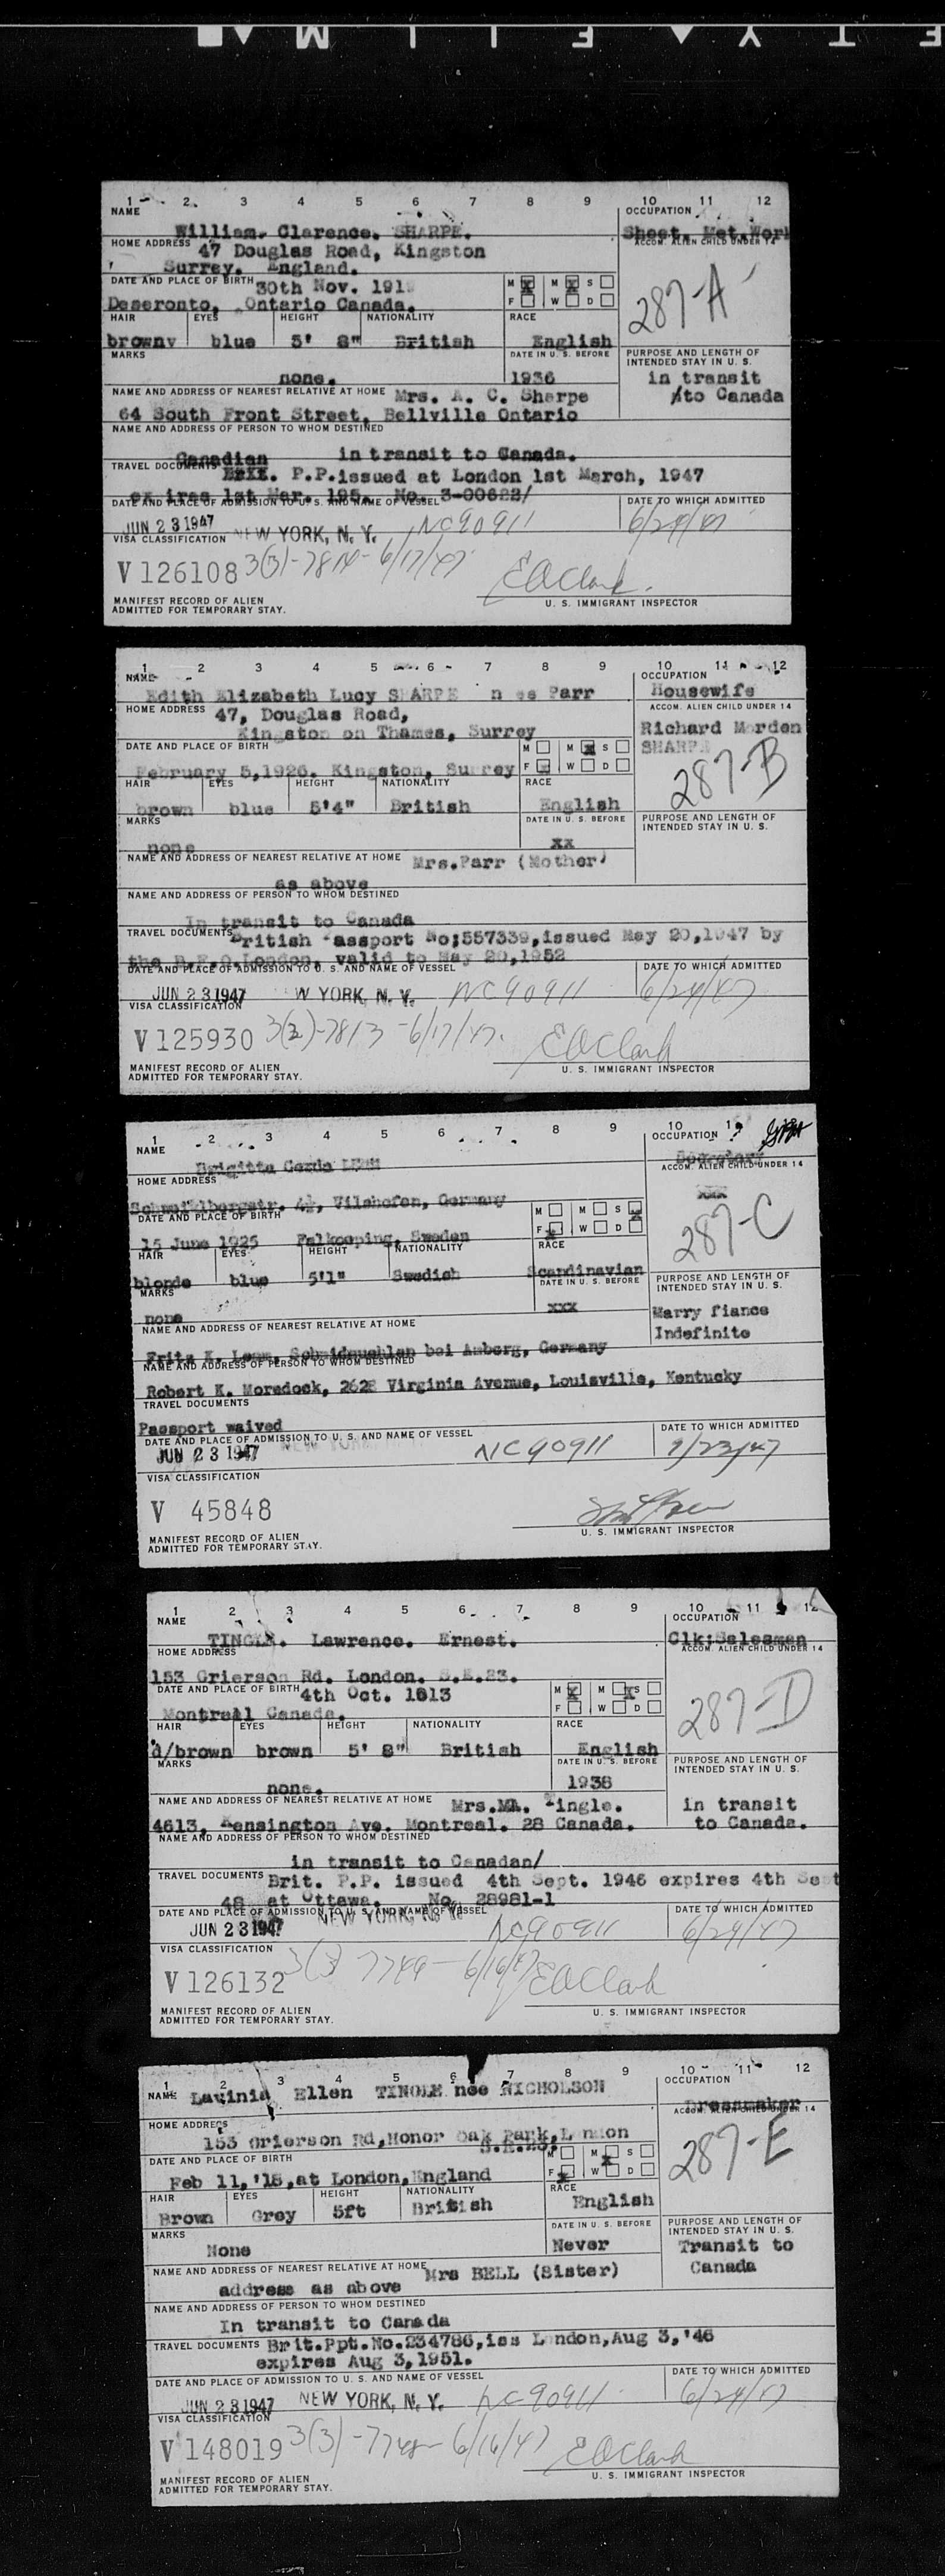 F E T Y F I L M
1 2 3 4 5 6 7 8 9 10 11 12
NAME
OCCUPATION
William. Clarence. SHARPE.
Sheet. Met.Work
HOME ADDRESS 47 Douglas Road, Kingston
ACCOM. ALIEN CHILD UNDER 14
Surrey. England.
287-A
DATE AND PLACE OF BIRTH 30th Nov. 191
M X M X S
Deseronto, Ontario Canada.
F W D
HAIR EYES HEIGHT NATIONALITY RACE
brownv blue 5' 8" British English
MARKS
DATE IN U. S. BEFORE
PURPOSE AND LENGTH OF INTENDED STAY IN U. S.
none. 1936 in transit
NAME AND ADDRESS OF NEAREST RELATIVE AT HOME Mrs. A. C. Sharpe
/to Canada
64 South Front Street, Bellville Ontario
NAME AND ADDRESS OF PERSON TO WHOM DESTINED
Canadian in transit to Canada.
TRAVEL DOCUMENTS P.P.issued at London 1st March, 1947
1st Mar. No. 3-00622/
DATE AND PLACE OF ADMISSION TO U. S. AND NAME OF VESSEL
DATE TO WHICH ADMITTED
JUN 23 1947 NEW YORK, N. Y. NC90911 6/24/47
VISA CLASSIFICATION
V 126108 3(3)-7814-6/17/47 EOClark.
MANIFEST RECORD OF ALIEN
U. S. IMMIGRANT INSPECTOR
ADMITTED FOR TEMPORARY STAY.
1 2 3 4 5 6 7 8 9 10 11 12
NAME
OCCUPATION
Edith Elizabeth Lucy SHARPE nee Parr
Housewife
HOME ADDRESS 47, Douglas Road,
ACCOM. ALIEN CHILD UNDER 14
Kingston on Thames, Surrey
Richard Morden
SHARPE
287-B
DATE AND PLACE OF BIRTH
M M X S
February 5,1926. Kingston, Surrey
F X W D
HAIR EYES HEIGHT NATIONALITY RACE
brown blue 5'4" British English
MARKS
DATE IN U. S. BEFORE
PURPOSE AND LENGTH OF INTENDED STAY IN U. S.
none xx
NAME AND ADDRESS OF NEAREST RELATIVE AT HOME Mrs.Parr (Mother)
as above
NAME AND ADDRESS OF PERSON TO WHOM DESTINED
In transit to Canada
TRAVEL DOCUMENTS British Passport No;557339,issued May 20,1947 by
the London, valid to May 20,1952
DATE AND PLACE OF ADMISSION TO U. S. AND NAME OF VESSEL
DATE TO WHICH ADMITTED
JUN 23 1947 W YORK, N. Y. NC90911 6/24/47
VISA CLASSIFICATION
V 125930 3(2)-7813-6/17/47. EOClark
MANIFEST RECORD OF ALIEN
U. S. IMMIGRANT INSPECTOR
ADMITTED FOR TEMPORARY STAY.
1 2 3 4 5 6 7 8 9 10 1
NAME
OCCUPATION
Brigitta Gerda
Secretary
HOME ADDRESS
ACCOM. ALIEN CHILD UNDER 14
4½, Vilshofen, Germany
xxx
287-C
DATE AND PLACE OF BIRTH
M M S X
15 June 1925 Falkoeping, Sweden
F X W D
HAIR EYES HEIGHT NATIONALITY RACE
blonde blue 5'1" Swedish Scandinavian
MARKS
DATE IN U. S. BEFORE
PURPOSE AND LENGTH OF INTENDED STAY IN U. S.
none xxx Marry fiance
NAME AND ADDRESS OF NEAREST RELATIVE AT HOME
Indefinite
Fritz K. bei Amberg, Germany
NAME AND ADDRESS OF PERSON TO WHOM DESTINED
Robert K. Moredock, 2628 Virginia Avenue, Louisville, Kentucky
TRAVEL DOCUMENTS
Passport waived
DATE AND PLACE OF ADMISSION TO U. S. AND NAME OF VESSEL
DATE TO WHICH ADMITTED
JUN 23 1947 NEW YORK NC90911 9/23/47
VISA CLASSIFICATION
V 45848
MANIFEST RECORD OF ALIEN
U. S. IMMIGRANT INSPECTOR
ADMITTED FOR TEMPORARY STAY.
1 2 3 4 5 6 7 8 9 10 11 12
NAME
OCCUPATION
TINGLE. Lawrence. Ernest.
Clk:Salesman
HOME ADDRESS
ACCOM. ALIEN CHILD UNDER 14
153 Grierson Rd. London. S.E.23.
287-D
DATE AND PLACE OF BIRTH 4th Oct. 1913
M X M X S
Montreal Canada.
F W D
HAIR EYES HEIGHT NATIONALITY RACE
d/brown brown 5' 8" British English
MARKS
DATE IN U. S. BEFORE
PURPOSE AND LENGTH OF INTENDED STAY IN U. S.
none. 1938
NAME AND ADDRESS OF NEAREST RELATIVE AT HOME Mrs.MA. Tingle.
in transit
4613, Kensington Ave. Montreal. 28 Canada.
to Canada.
NAME AND ADDRESS OF PERSON TO WHOM DESTINED
in transit to Canadan/
TRAVEL DOCUMENTS Brit. P.P. issued 4th Sept. 1946 expires 4th Sept
48 at Ottawa. No. 28981-1
DATE AND PLACE OF ADMISSION TO U. S. AND NAME OF VESSEL
DATE TO WHICH ADMITTED
JUN 23 1947 NEW YORK, N. Y. NC90911 6/24/47
VISA CLASSIFICATION
V 126132 3(3) 7749-6/16/47 EOClark
MANIFEST RECORD OF ALIEN
U. S. IMMIGRANT INSPECTOR
ADMITTED FOR TEMPORARY STAY.
1 2 3 4 5 6 7 8 9 10 11 12
NAME Lavinia Ellen TINGLE nee NICHOLSON
OCCUPATION
Dressmaker
HOME ADDRESS
ACCOM. ALIEN CHILD UNDER 14
153 Grierson Rd,Honor Oak Park,London
S.E.23.
287-E
DATE AND PLACE OF BIRTH
M M X S
Feb 11,'18,at London,England
F X W D
HAIR EYES HEIGHT NATIONALITY RACE
Brown Grey 5ft British English
MARKS
DATE IN U. S. BEFORE
PURPOSE AND LENGTH OF INTENDED STAY IN U. S.
None Never Transit to
NAME AND ADDRESS OF NEAREST RELATIVE AT HOME Mrs BELL (Sister)
Canada
address as above
NAME AND ADDRESS OF PERSON TO WHOM DESTINED
In transit to Canada
TRAVEL DOCUMENTS Brit.Ppt.No.234786,iss London,Aug 3,'46
expires Aug 3,1951.
DATE AND PLACE OF ADMISSION TO U. S. AND NAME OF VESSEL
DATE TO WHICH ADMITTED
JUN 23 1947 NEW YORK, N. Y. NC90911 6/24/47
VISA CLASSIFICATION
V 148019 3(3)-7748-6/16/47 EOClark
MANIFEST RECORD OF ALIEN
U. S. IMMIGRANT INSPECTOR
ADMITTED FOR TEMPORARY STAY.